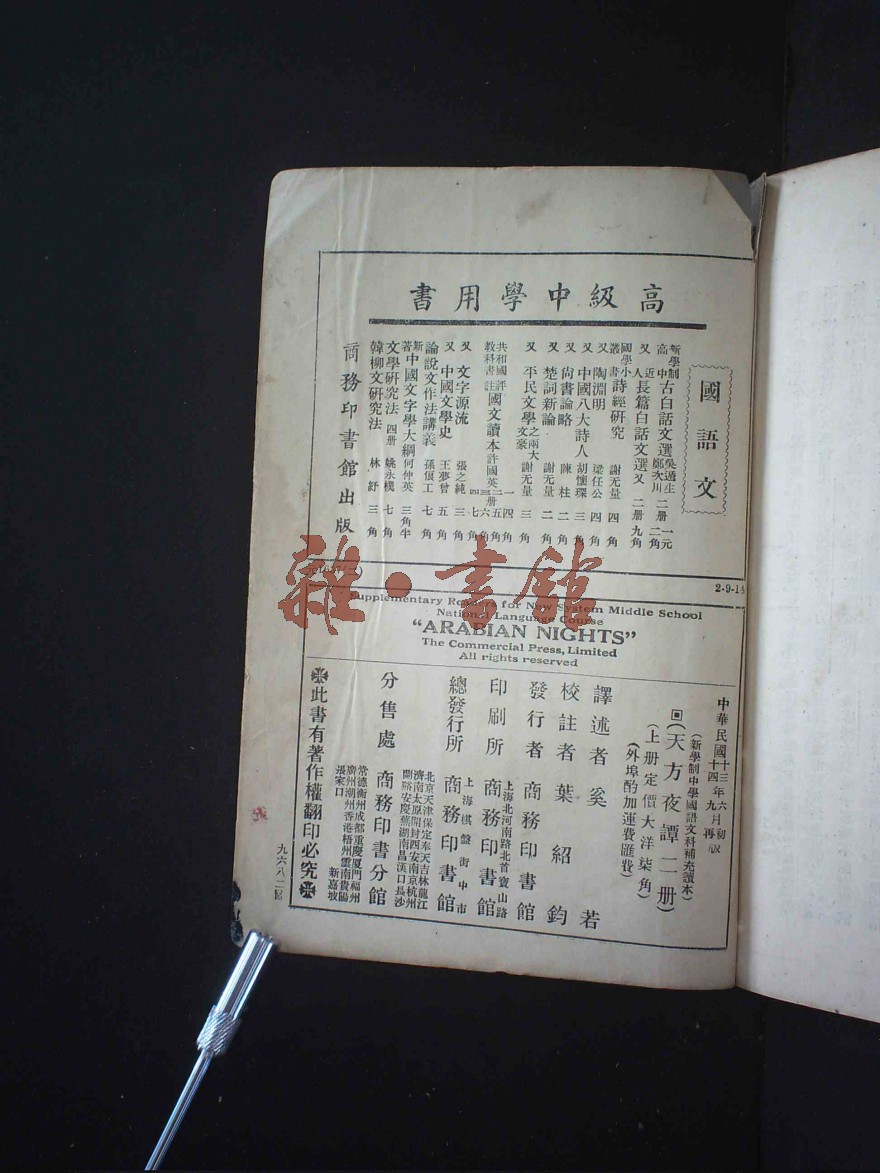 高級中學用書
國語文
新學制高中 古白話文選 吳遁生 鄭次川 二册 一元二角
又 近人長篇白話文選 又 二册 九角
國學小叢書 詩經研究 謝无量 四角
又 陶淵明 梁任公 四角
又 中國八大詩人 胡懷琛 三角
又 尙書論略 陳柱 二角
又 楚詞新論 謝无量 二角
又 平民文學之兩大文豪 謝无量 三角
共和國教科書 評註國文讀本 許國英 四册 一四角 二五角 三六角 四七角
又 文字源流 張之純 三角
又 中國文學史 王夢曾 五角
論說文作法講義 孫俍工 七角
新著中國文字學大綱 何仲英 三角半
文學研究法 四册 姚永樸 七角
韓柳文研究法 林紓 三角
商務印書館出版
2-9-1
雜·書館
Supplementary Readers for New System Middle School
National Language Course
"ARABIAN NIGHTS"
The Commercial Press, Limited
All rights reserved
中華民國十三年六月初版
十四年九月再版
(新學制中學國語文科補充讀本)
回(天方夜譚二册)
(上册定價大洋柒角)
(外埠酌加運費匯費)
譯述者 奚若
校註者 葉紹鈞
發行者 商務印書館
印刷所 上海北河南路北首寶山路 商務印書館
總發行所 上海棋盤街中市 商務印書館
分售處 商務印書分館
北京天津保定奉天吉林龍江
濟南太原開封西安南京杭州
蘭谿安慶蕪湖南昌漢口長沙
常德衡州成都重慶厦門福州
廣州潮州香港梧州雲南貴陽
張家口 新嘉坡
此書有著作權翻印必究
九六八二